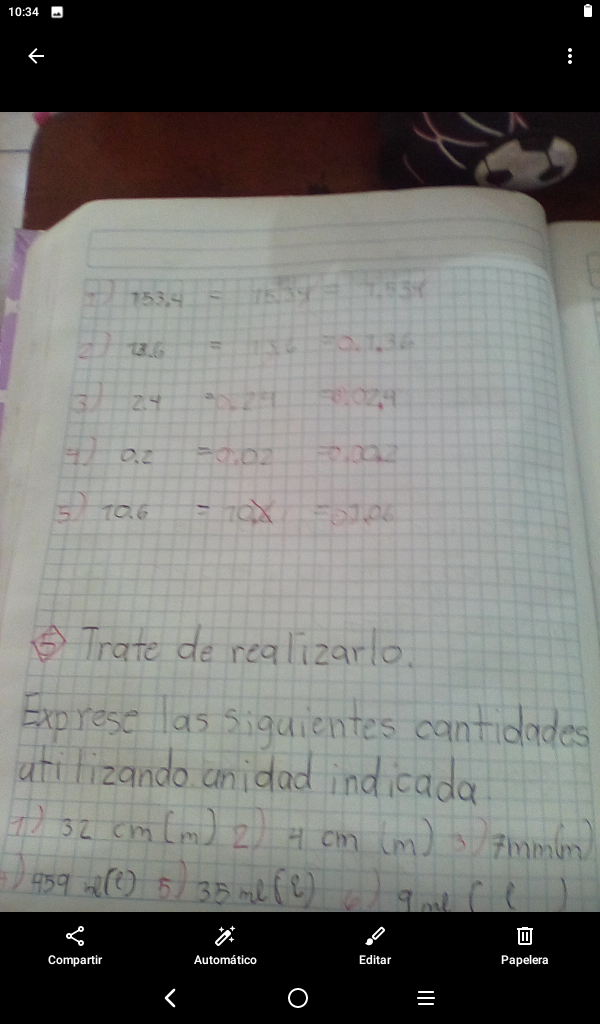 10:34
1) 153.4 = 15.34 = 1.534
2) 13.6 = 13.6 = 0.1.36
3) 2.4 = 0.24 = 0.02.4
4) 0.2 = 0.02 = 0.00.2
5) 10.6 = = 01.06
5 Trate de realizarlo.
Exprese las siguientes cantidades
utilizando unidad indicada.
1) 32 cm (m) 2) 4 cm (m) 3) 7mm(m)
4) 459 ml(l) 5) 35 ml(l) 6) 9 ml ( l )
Compartir
Automático
Editar
Papelera